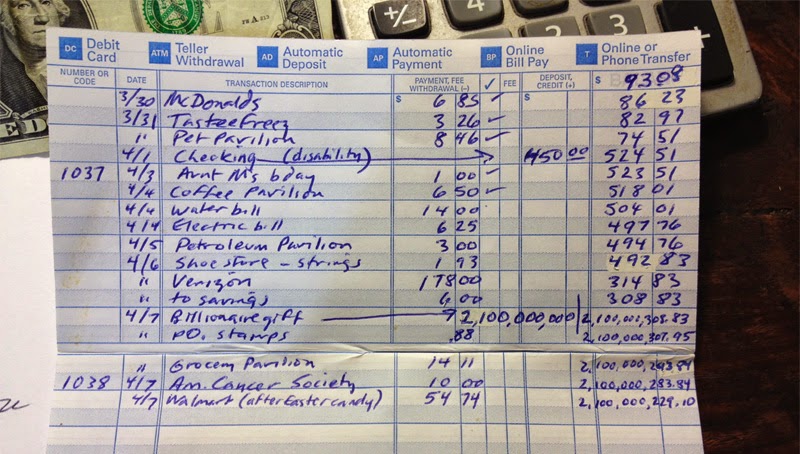 DC Debit Card ATM Teller Withdrawal AD Automatic Deposit AP Automatic Payment BP Online Bill Pay T Online or Phone Transfer
NUMBER OR CODE DATE TRANSACTION DESCRIPTION PAYMENT, FEE WITHDRAWAL (–) ✓ FEE DEPOSIT, CREDIT (+) $ 93 08
3/30 McDonalds $ 6 85 ✓ $ 86 23
3/31 TasteeFreez 3 26 ✓ 82 97
" Pet Pavilion 8 46 ✓ 74 51
4/1 Checking (disability) → 450 00 524 51
1037 4/3 Aunt M's bday 1 00 ✓ 523 51
4/4 Coffee Pavilion 6 50 ✓ 518 01
4/4 Water bill 14 00 504 01
4/4 Electric bill 6 25 497 76
4/5 Petroleum Pavilion 3 00 494 76
4/6 Shoe store - strings 1 93 492 83
" Verizon 178 00 314 83
" to savings 6 00 308 83
4/7 Billionaire gift → 2,100,000,000 2,100,000,308.83
" P.O. stamps .88 2,100,000,307.95
" Grocery Pavilion 14 11 2,100,000,293.84
1038 4/7 Am. Cancer Society 10 00 2,100,000,283.84
4/7 Walmart (after Easter candy) 54 74 2,100,000,229.10